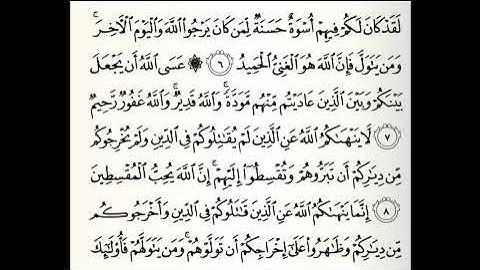 لَقَدْ كَانَ لَكُمْ فِيهِمْ أُسْوَةٌ حَسَنَةٌ لِّمَن كَانَ يَرْجُوا۟ ٱللَّهَ وَٱلْيَوْمَ ٱلْـَٔاخِرَ ۚ
وَمَن يَتَوَلَّ فَإِنَّ ٱللَّهَ هُوَ ٱلْغَنِىُّ ٱلْحَمِيدُ ٦ ۞ عَسَى ٱللَّهُ أَن يَجْعَلَ
بَيْنَكُمْ وَبَيْنَ ٱلَّذِينَ عَادَيْتُم مِّنْهُم مَّوَدَّةً ۚ وَٱللَّهُ قَدِيرٌ ۚ وَٱللَّهُ غَفُورٌ رَّحِيمٌ
٧ لَّا يَنْهَىٰكُمُ ٱللَّهُ عَنِ ٱلَّذِينَ لَمْ يُقَـٰتِلُوكُمْ فِى ٱلدِّينِ وَلَمْ يُخْرِجُوكُم
مِّن دِيَـٰرِكُمْ أَن تَبَرُّوهُمْ وَتُقْسِطُوٓا۟ إِلَيْهِمْ ۚ إِنَّ ٱللَّهَ يُحِبُّ ٱلْمُقْسِطِينَ
٨ إِنَّمَا يَنْهَىٰكُمُ ٱللَّهُ عَنِ ٱلَّذِينَ قَـٰتَلُوكُمْ فِى ٱلدِّينِ وَأَخْرَجُوكُم
مِّن دِيَـٰرِكُمْ وَظَـٰهَرُوا۟ عَلَىٰٓ إِخْرَاجِكُمْ أَن تَوَلَّوْهُمْ ۚ وَمَن يَتَوَلَّهُمْ فَأُو۟لَـٰٓئِكَ